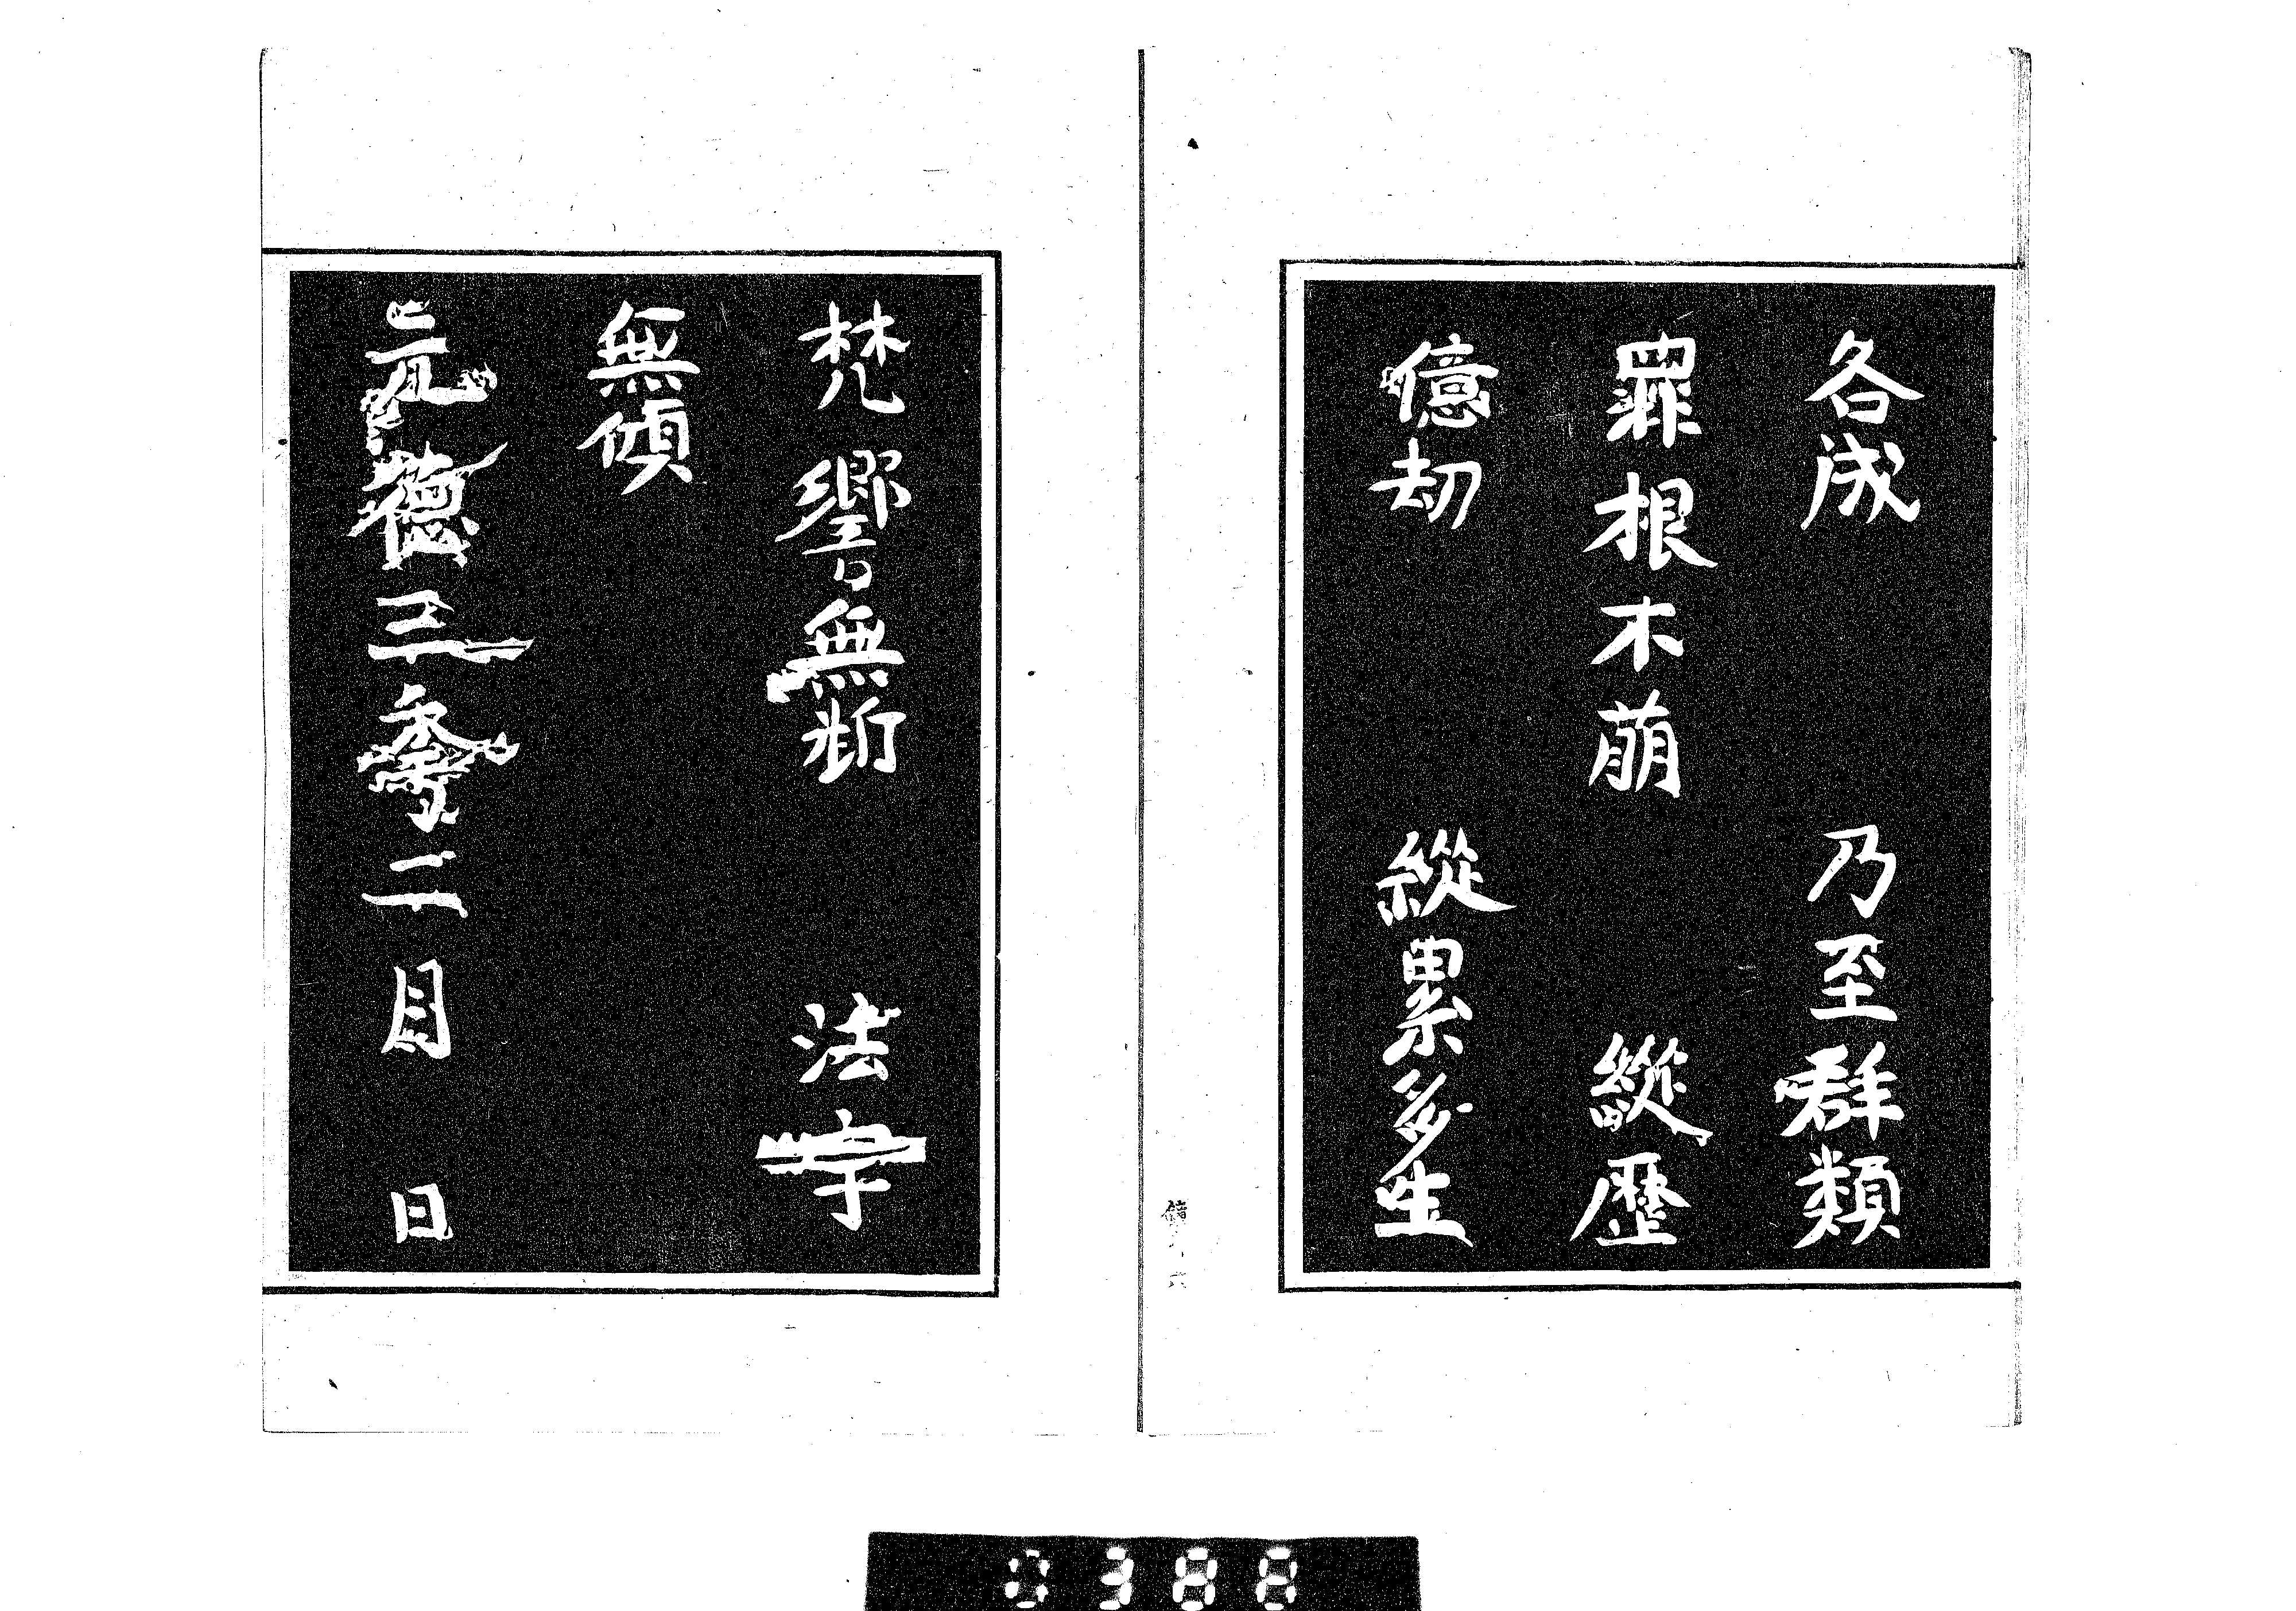 各成　乃至群類
罪根不萠　縱歴
億劫　縱累多生
梵響無斷　法宇
無傾
元德三季二月　日